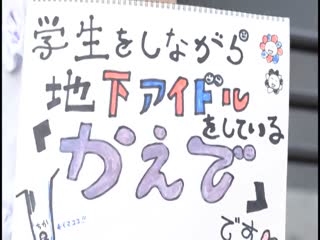 学生をしながら
地下アイドル
をしている
『かえで』
です
ちか